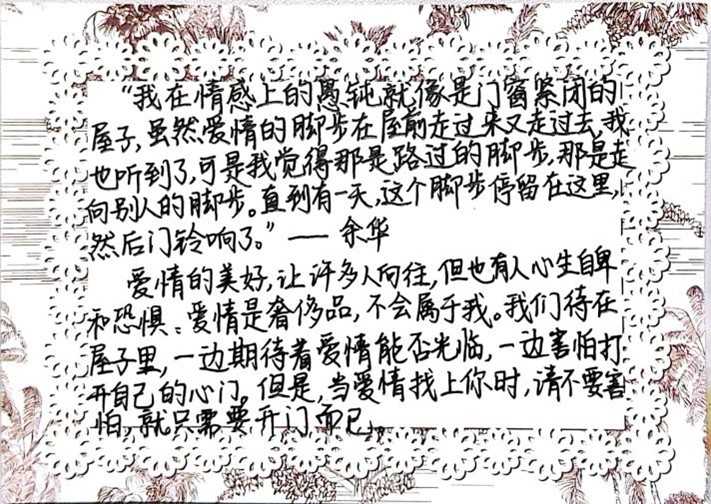 “我在情感上的愚钝就像是门窗紧闭的
屋子,虽然爱情的脚步在屋前走过来又走过去,我
也听到了,可是我觉得那是路过的脚步,那是走
向别人的脚步。直到有一天,这个脚步停留在这里,
然后门铃响了。” —— 余华
爱情的美好,让许多人向往,但也有人心生自卑
和恐惧:爱情是奢侈品,不会属于我。我们待在
屋子里,一边期待着爱情能否光临,一边害怕打
开自己的心门。但是,当爱情找上你时,请不要害
怕,就只需要开门而已。